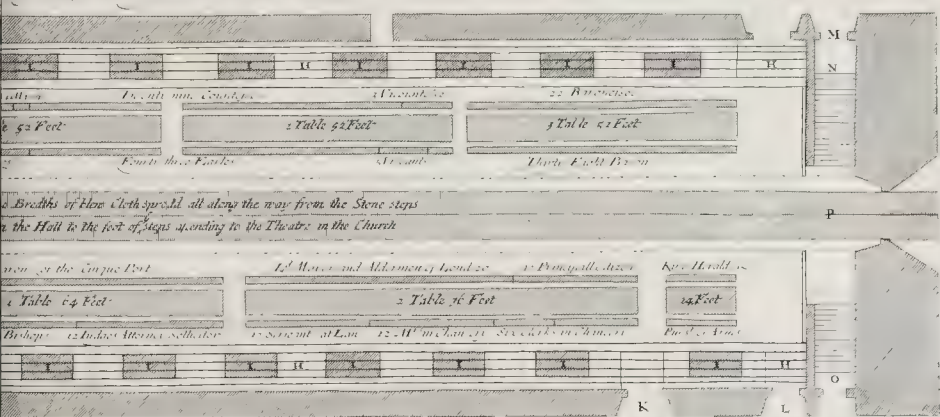 M
I I H I I I I H N
Twenty nine Countesses 2 Viscountesses 22 Baronesses
52 Feet 2 Table 52 Feet 3 Table 52 Feet
Fourty three Earles Viscounts Thirty Eight Barons
Breadths of Blew Cloth spredd all along the way from the Stone steps
P
the Hall to the foot of Steps ascending to the Theatre in the Church
of the Cinque Port Ld. Mayor and Aldermen of London 12 Principall Citizens King Heralds
1 Table 64 Feet 2 Table 76 Feet 24 Feet
Bishops 12 Judges Attorney Solliciter Serjeants at Law 12 Mrs. in Chancery Clerks in Chancery Pursts of Arms
I I I H I I I I H O
K L